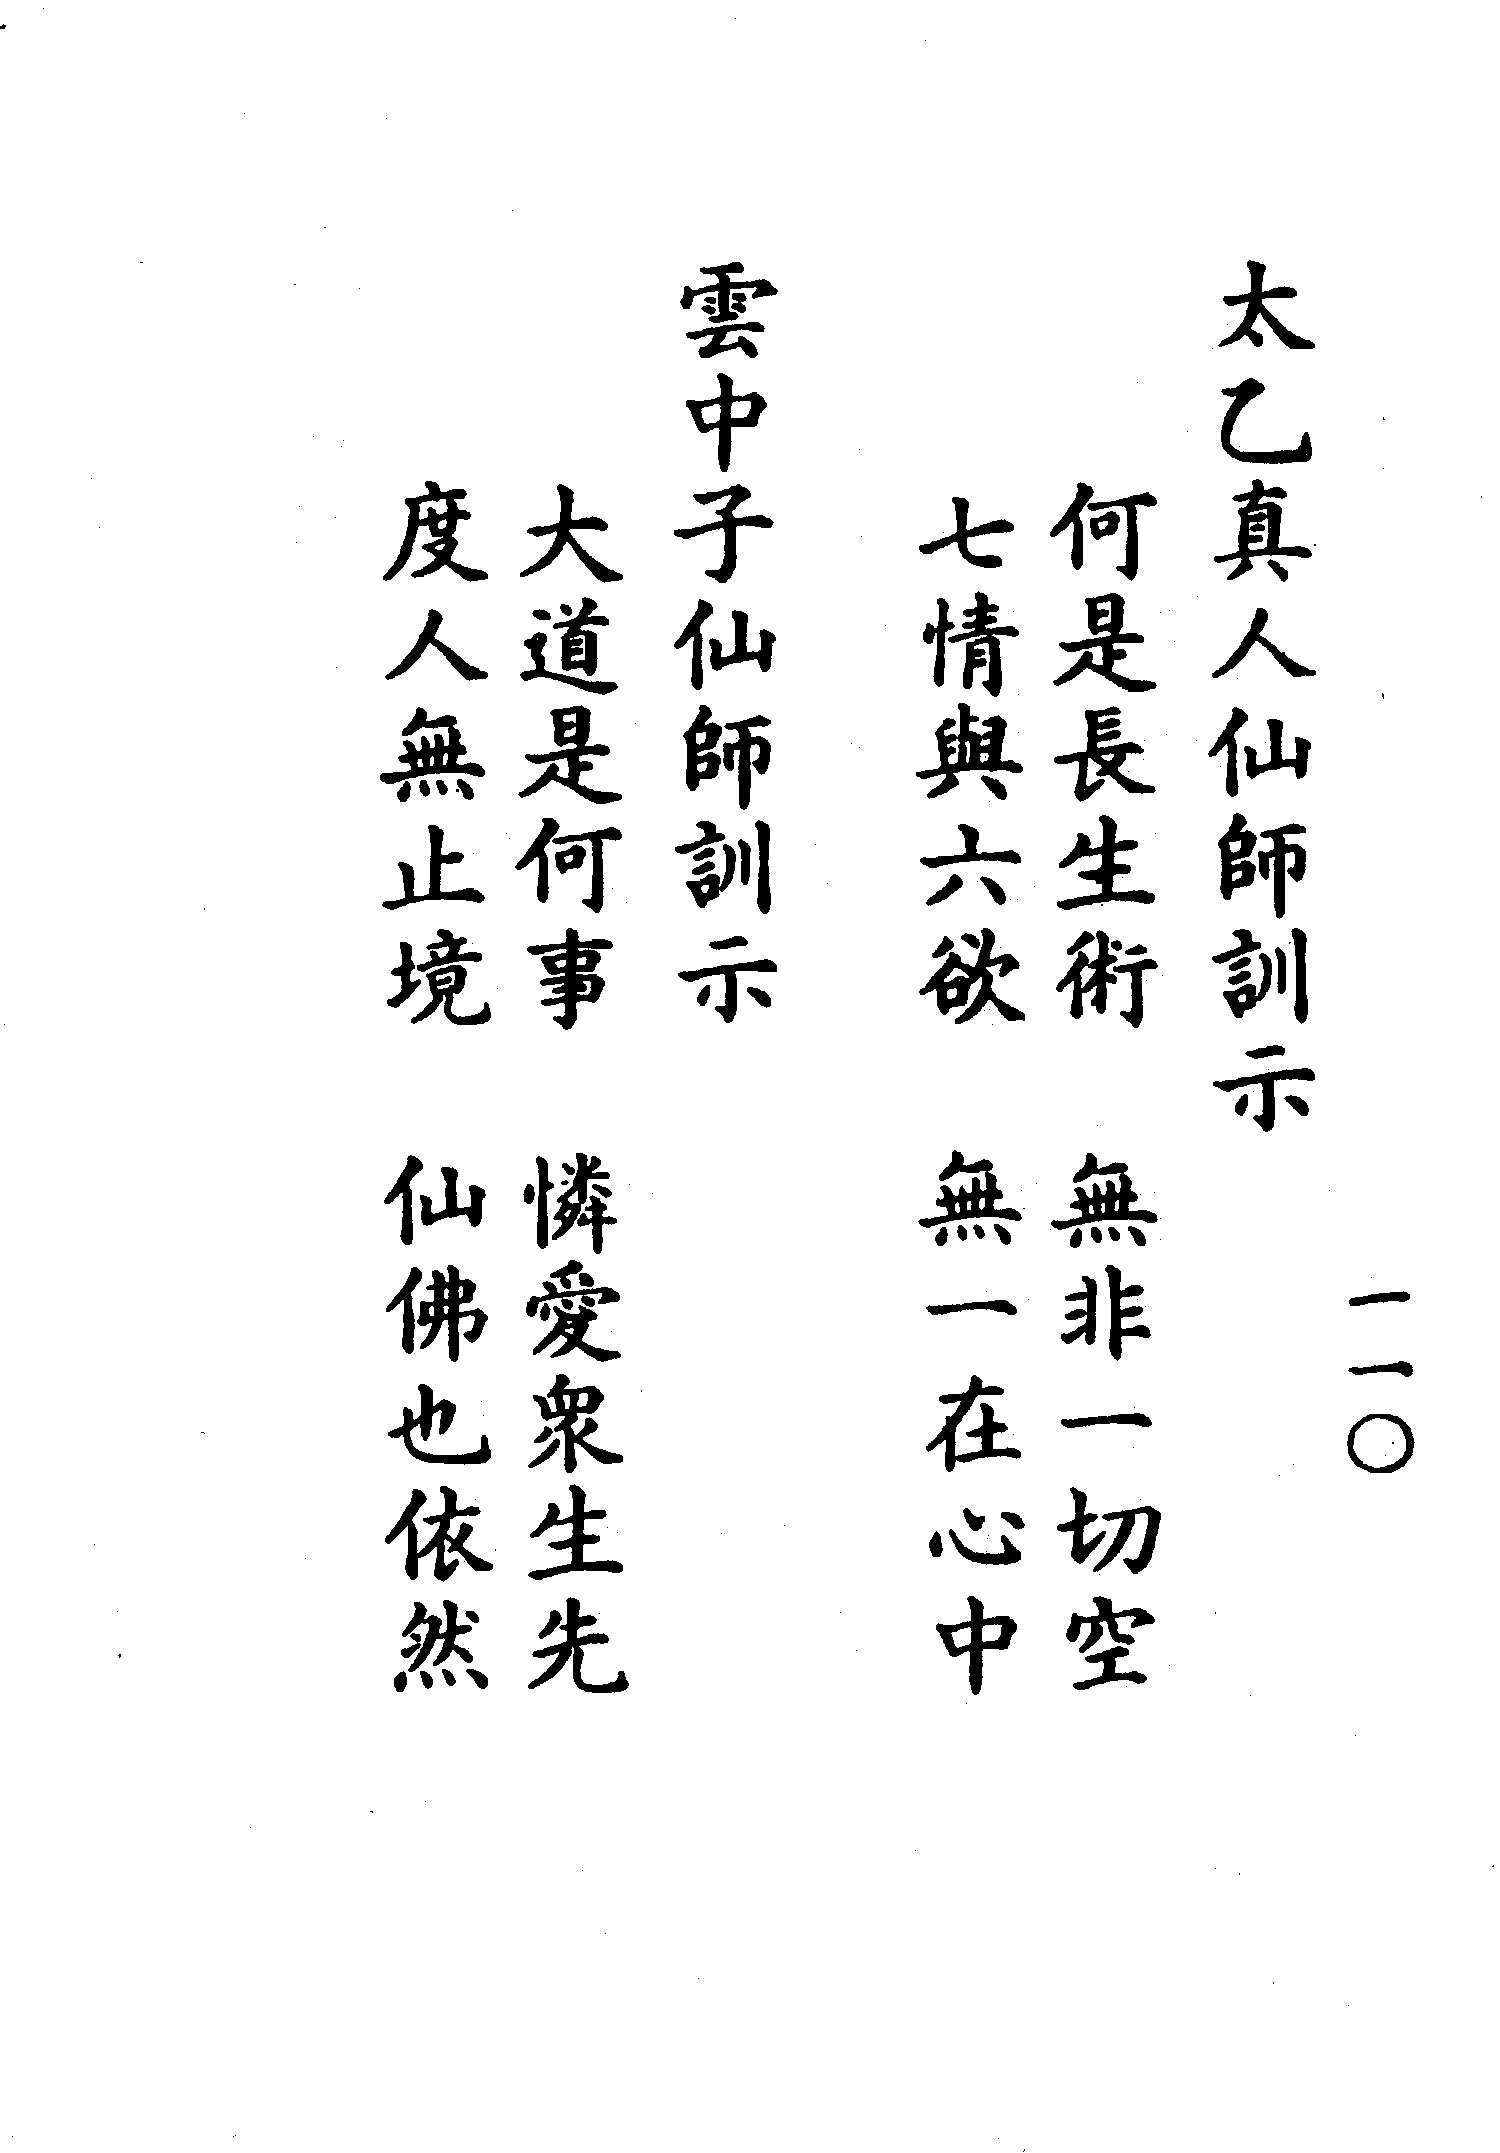 一一〇
太乙真人仙師訓示
何是長生術　無非一切空
七情與六欲　無一在心中
雲中子仙師訓示
大道是何事　憐愛眾生先
度人無止境　仙佛也依然